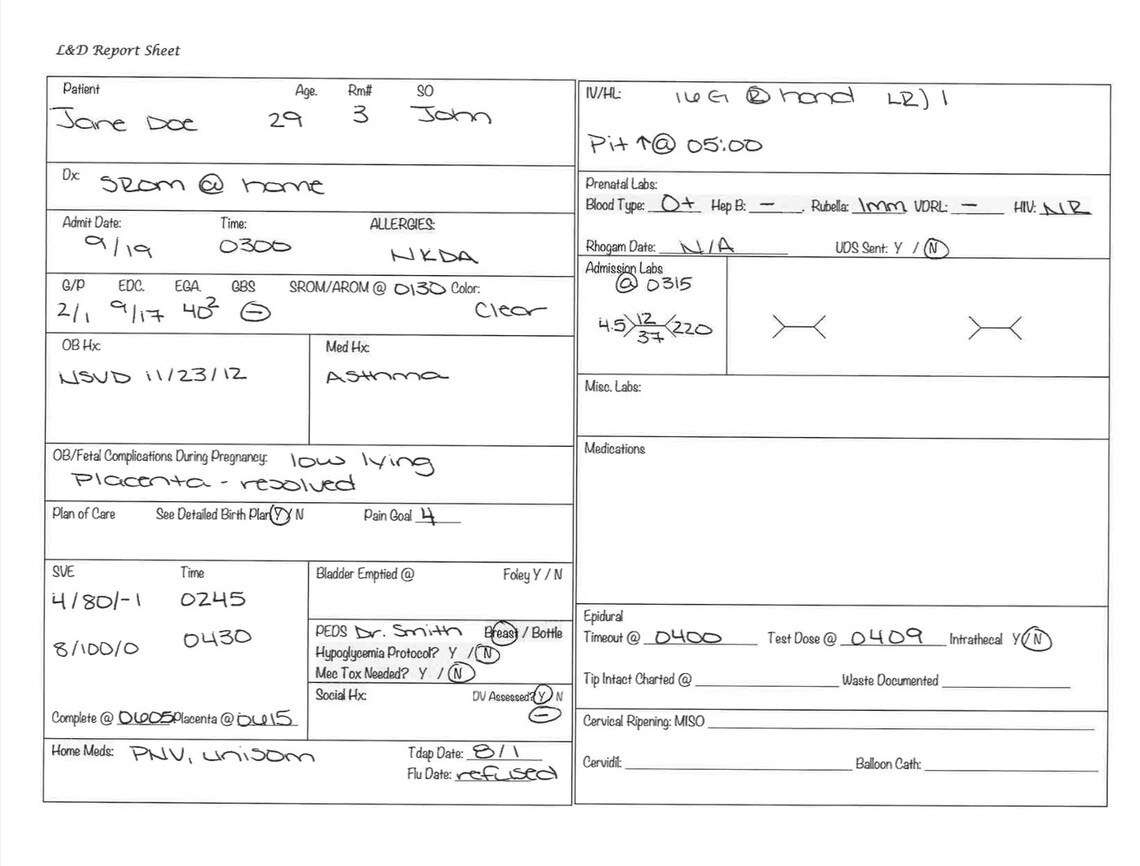 L&D Report Sheet
Patient Age. Rm# SO
Jane Doe 29 3 John
Dx: SROM @ home
Admit Date: Time: ALLERGIES:
9/19 0300 NKDA
G/P EDC. EGA. GBS SROM/AROM @ 0130 Color:
2/1 9/17 40² − Clear
OB Hx: Med Hx:
NSVD 11/23/12 Asthma
OB/Fetal Complications During Pregnancy: low lying
Placenta - resolved
Plan of Care See Detailed Birth Plan Y / N Pain Goal 4
SVE Time
4/80/-1 0245
8/100/0 0430
Complete @ 0605 Placenta @ 0615
Bladder Emptied @ Foley Y / N
PEDS Dr. Smith Breast / Bottle
Hypoglycemia Protocol? Y / N
Mec Tox Needed? Y / N
Social Hx: DV Assessed? Y N
−
Home Meds: PNV, unisom Tdap Date: 8/1
Flu Date: refused
IV/HL: 16G R hand LR) 1
Pit ↑@ 05:00
Prenatal Labs:
Blood Type: O+ Hep B: − . Rubella: Imm VDRL: − HIV: NR
Rhogam Date: N/A UDS Sent: Y / N
Admission Labs
@ 0315
4.5 12 220
37
Misc. Labs:
Medications
Epidural
Timeout @ 0400 Test Dose @ 0409 Intrathecal Y / N
Tip Intact Charted @ Waste Documented
Cervical Ripening: MISO
Cervidil: Balloon Cath: